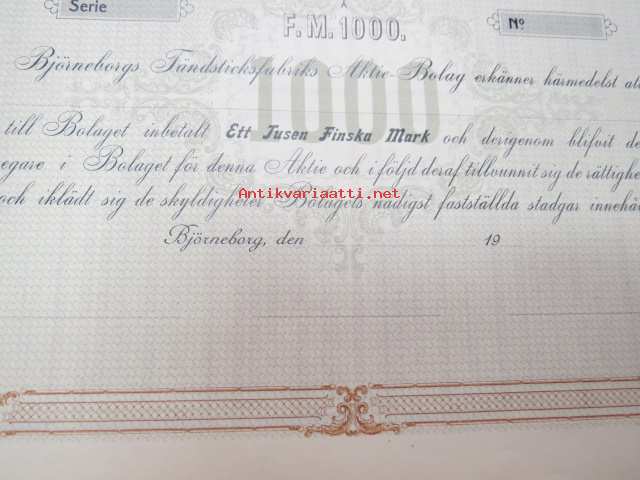 Serie
Nº
F. M. 1000.
1000
Björneborgs Tändsticksfabriks Aktie-Bolag erkänner härmedelst at
till Bolaget inbetalt Ett Tusen Finska Mark och derigenom blifvit de
egare i Bolaget för denna Aktie och i följd deraf tillvunnit sig de rättighe
Antikvariaatti.net
och iklädt sig de skyldigheter Bolagets nådigst fastställda stadgar innehå
Björneborg, den 19